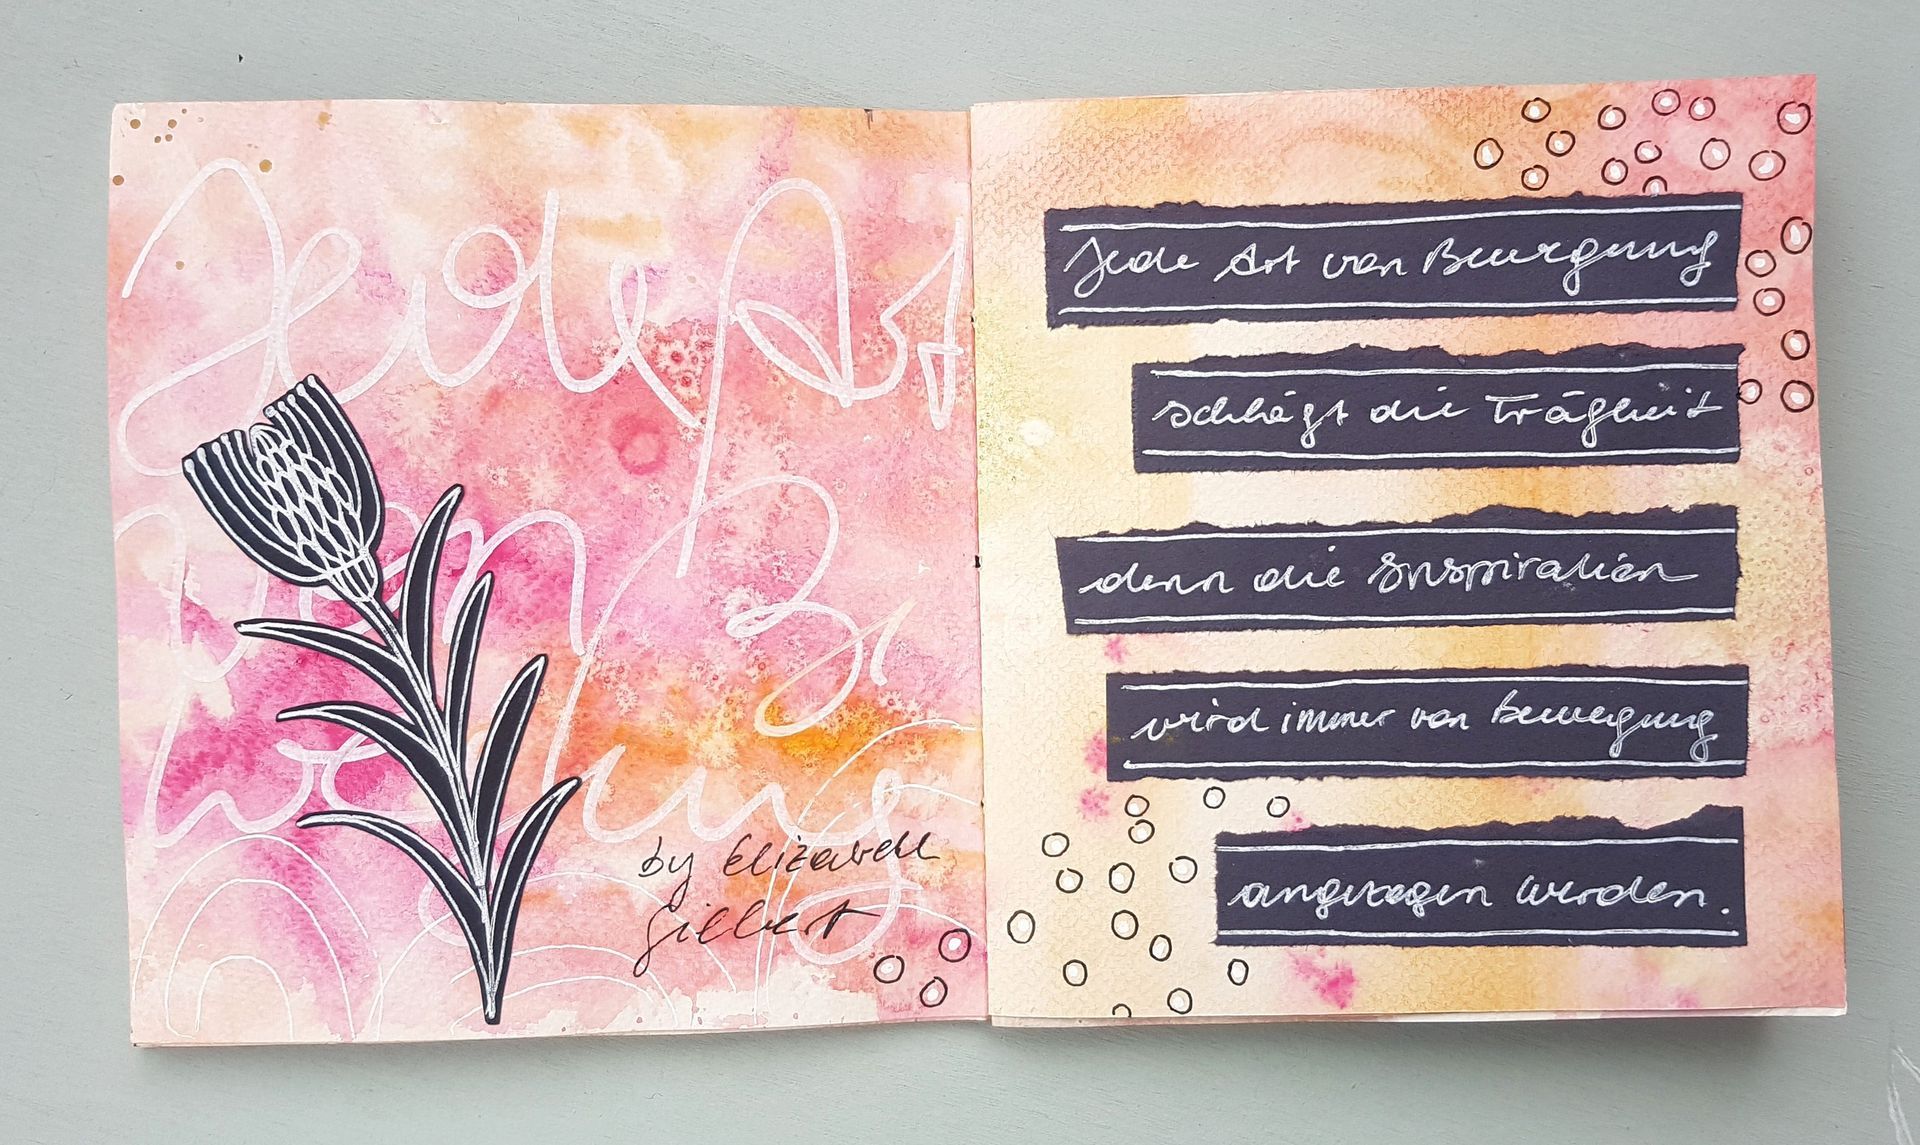 Jede Art
von Be
wegung
by Elizabeth
Gilbert
Jede Art von Bewegung
schlägt die Trägheit
denn die Inspiration
wird immer von bewegung
angezogen werden.